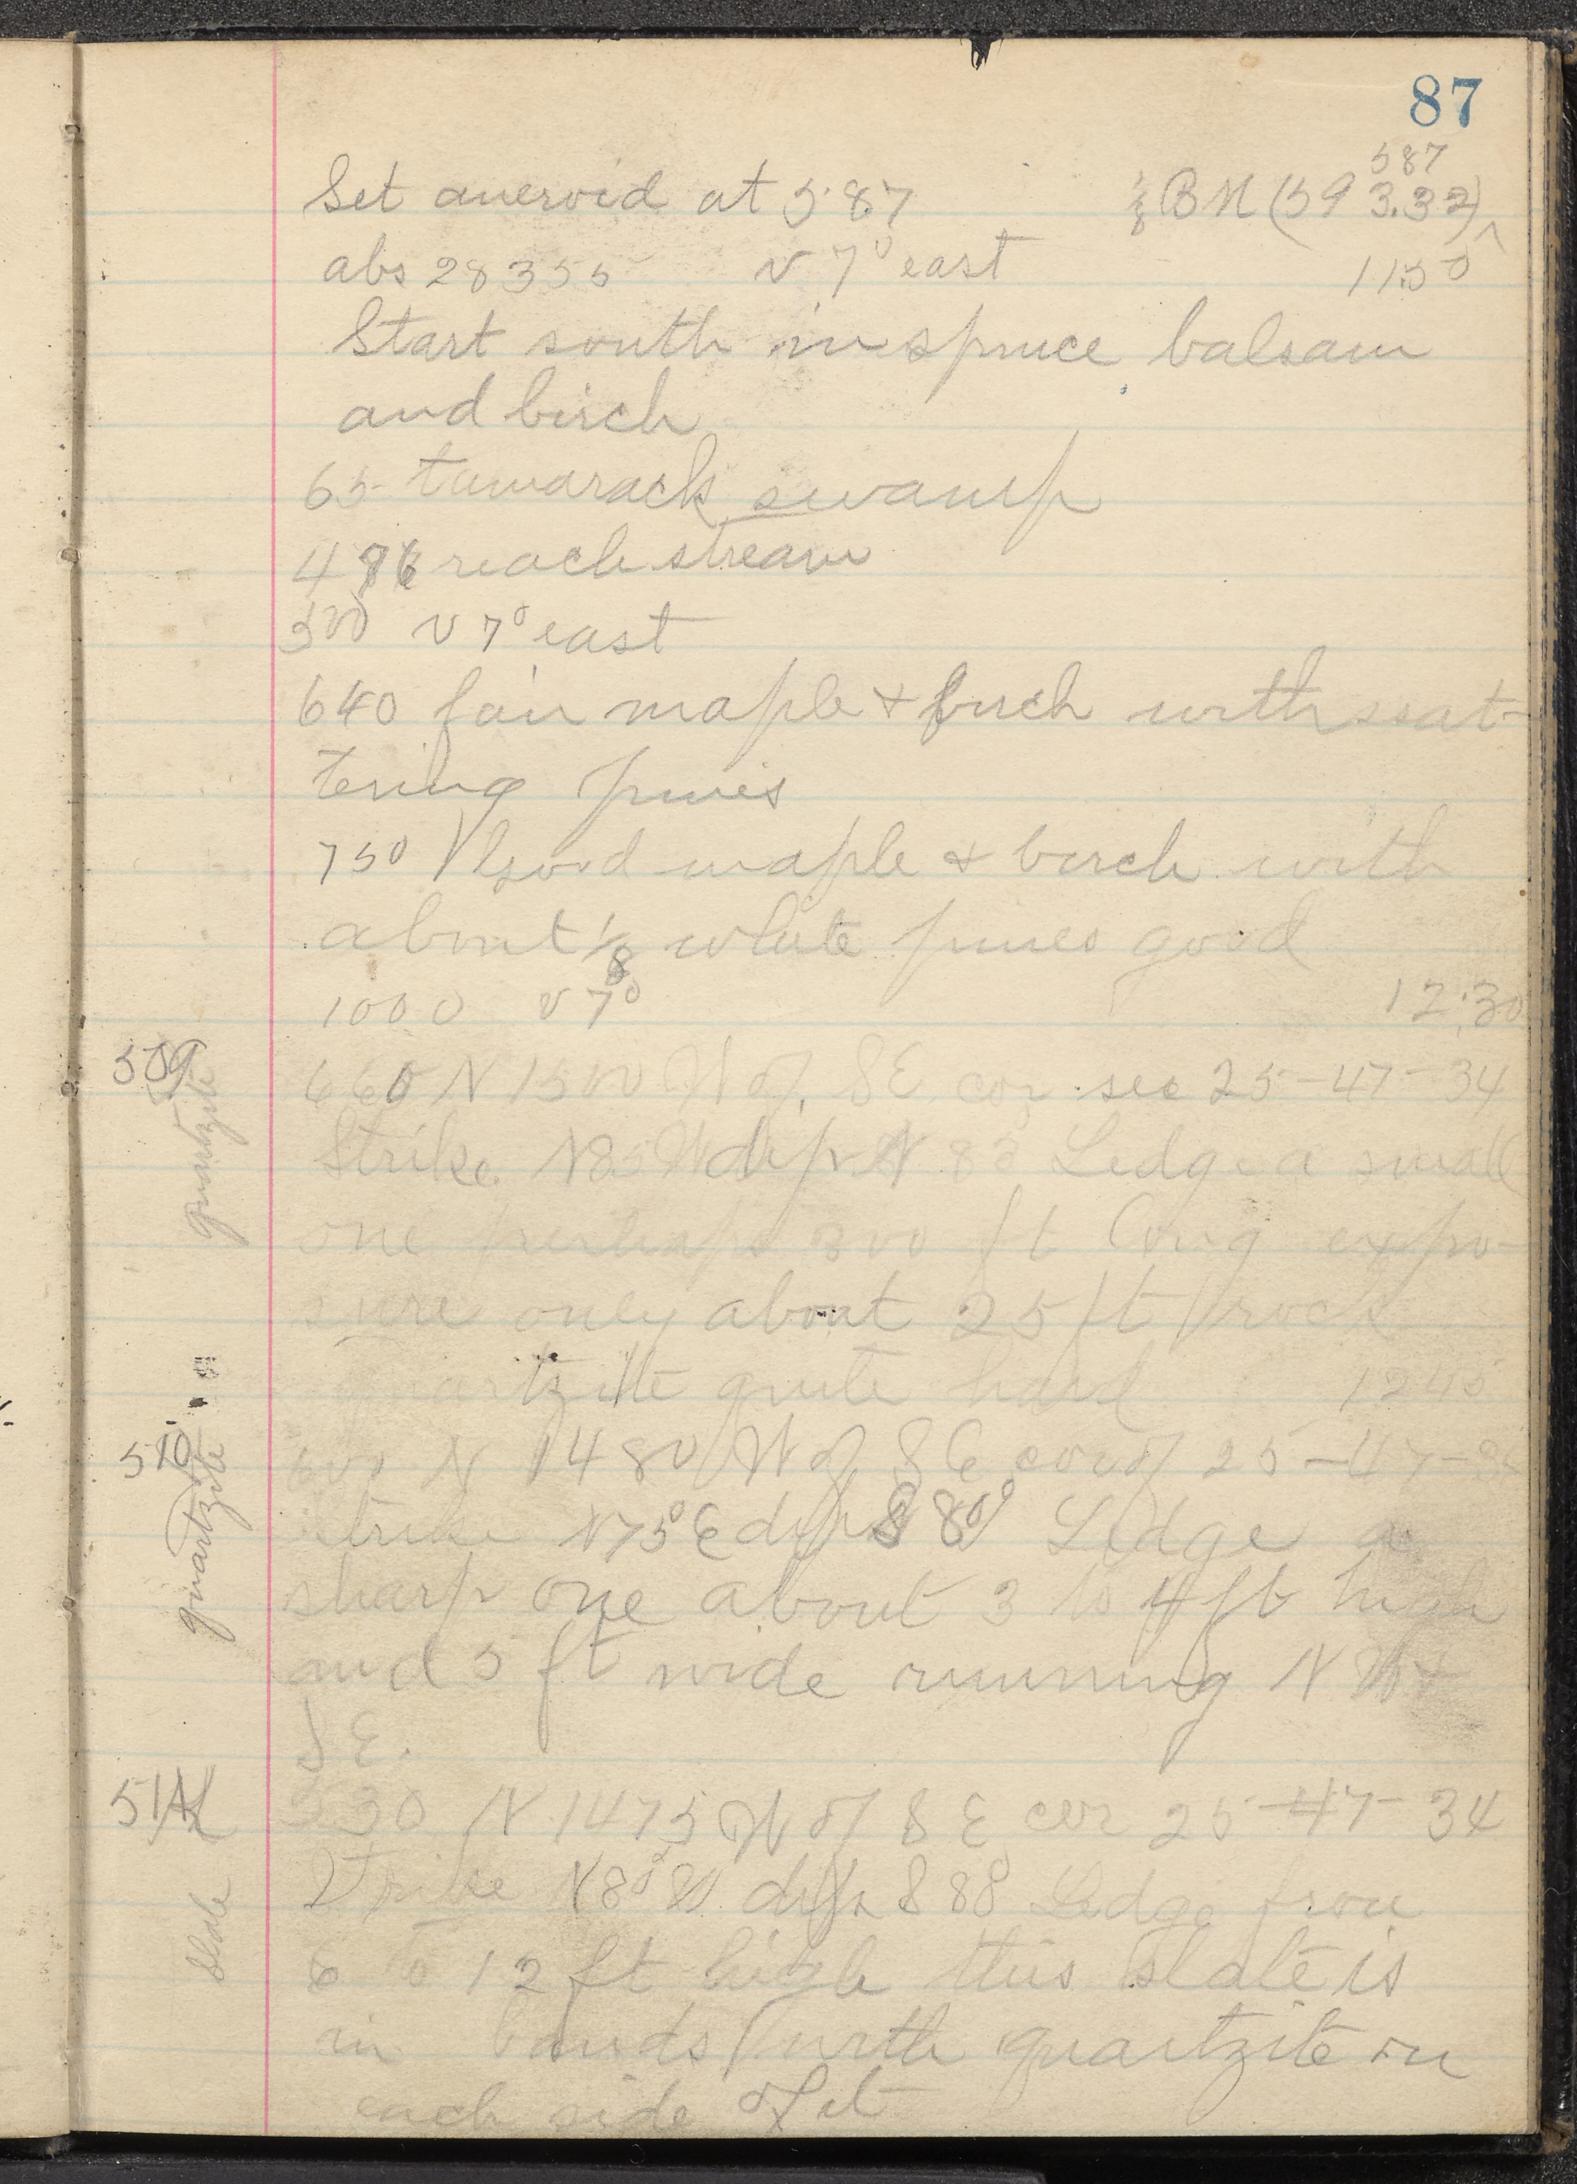 87
587
Set aneroid at 587 BM (593.32)
abs 28355 v 7° east 1150
Start south in spruce balsam
and birch
65 tamarack swamp
476 reach stream
500 v 7° east
640 fair maple + birch with scat-
tering pines
750 Good maple + birch with
about 1/8 white pines good
1000 v 7° 12:30
509 quartzite
660 N 1500 W of SE cor sec 25-47-34
Strike N85W dip N 80 Ledge a small
one perhaps 300 ft long expo-
sure only about 25 ft rock
quartzite quite hard 1245
510 quartzite
600 N 1480 W of SE cor of 25-47-34
strike N75°E dip S 80° Ledge a
sharp one about 3 to 4 ft high
and 5 ft wide running NW +
SE.
511 Slate
530 N 1475 W of SE cor 25-47-34
Strike N80°W dip S 88 Ledge from
6 to 12 ft high this slate is
in bands with quartzite on
each side of it